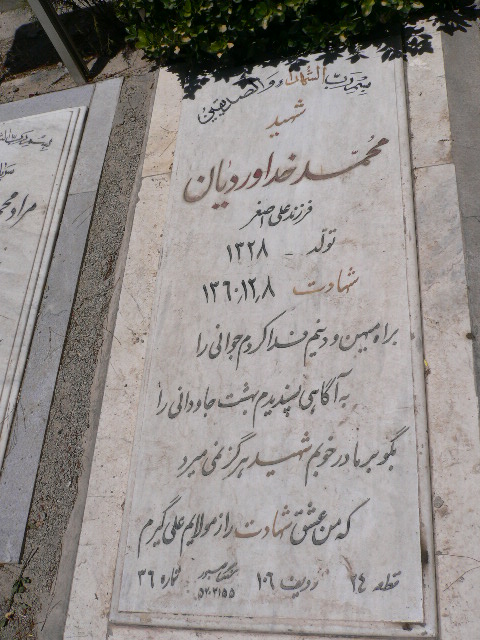 بسم رب الشهداء و الصدیقین
شهید
محمد خداوردیان
فرزند علی اصغر
تولد - ۱۳۲۸
شهادت ۱۳۶۰،۱۲،۸
براه میهن و دینم فدا کردم جوانی را
به آگاهی پسندیدم بهشت جاودانی را
بگو بر مادر خوبم شهید هرگز نمی میرد
که من عشق شهادت را ز مولایم علی گیرم
قطعه ۲۴ ردیف ۱۰۶ شماره ۳۶
۵۲۰۳۱۵۵
مراد